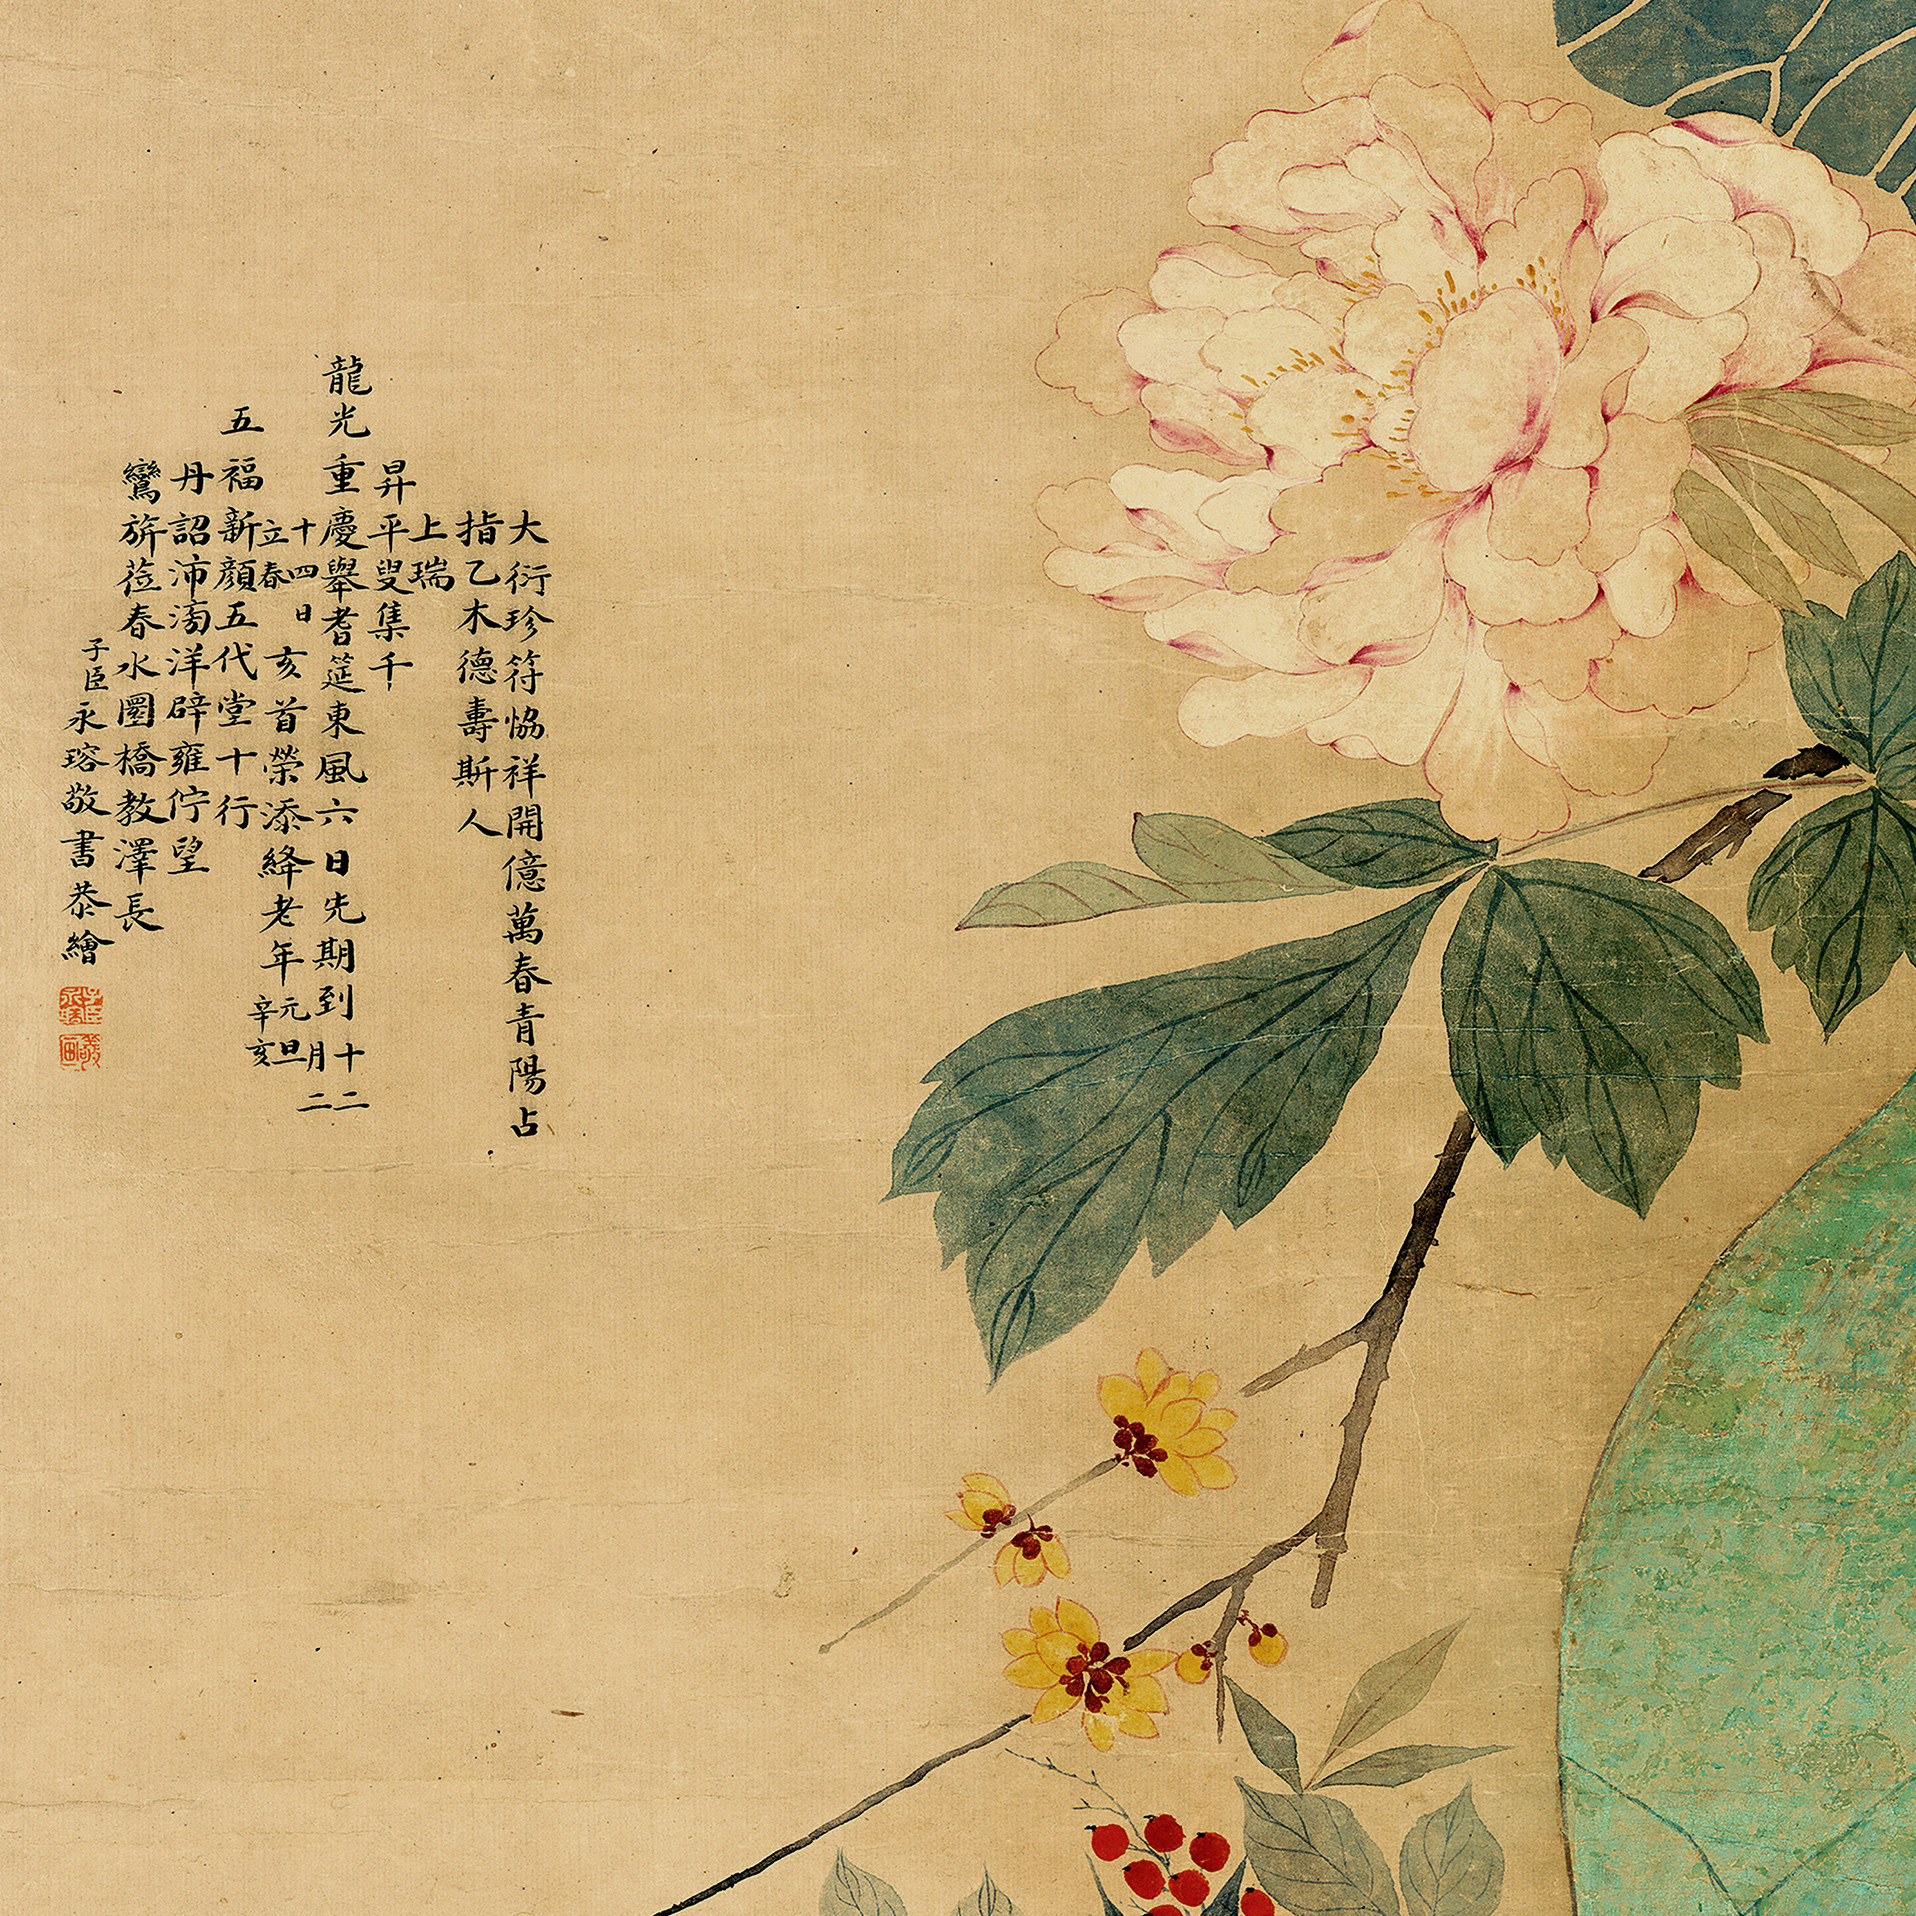 大衍珍符恊祥開億萬春青陽占
指乙木德壽斯人
上瑞
昇平叟集千
龍光重慶舉耆筵東風六日先期到十二月二
十四日立春亥首榮添絳老年元旦辛亥
五福新顏五代堂十行
丹詔沛滂洋辟雍佇望
鸞旂莅春水圜橋教澤長
子臣永瑢敬書恭繪
子臣永瑢